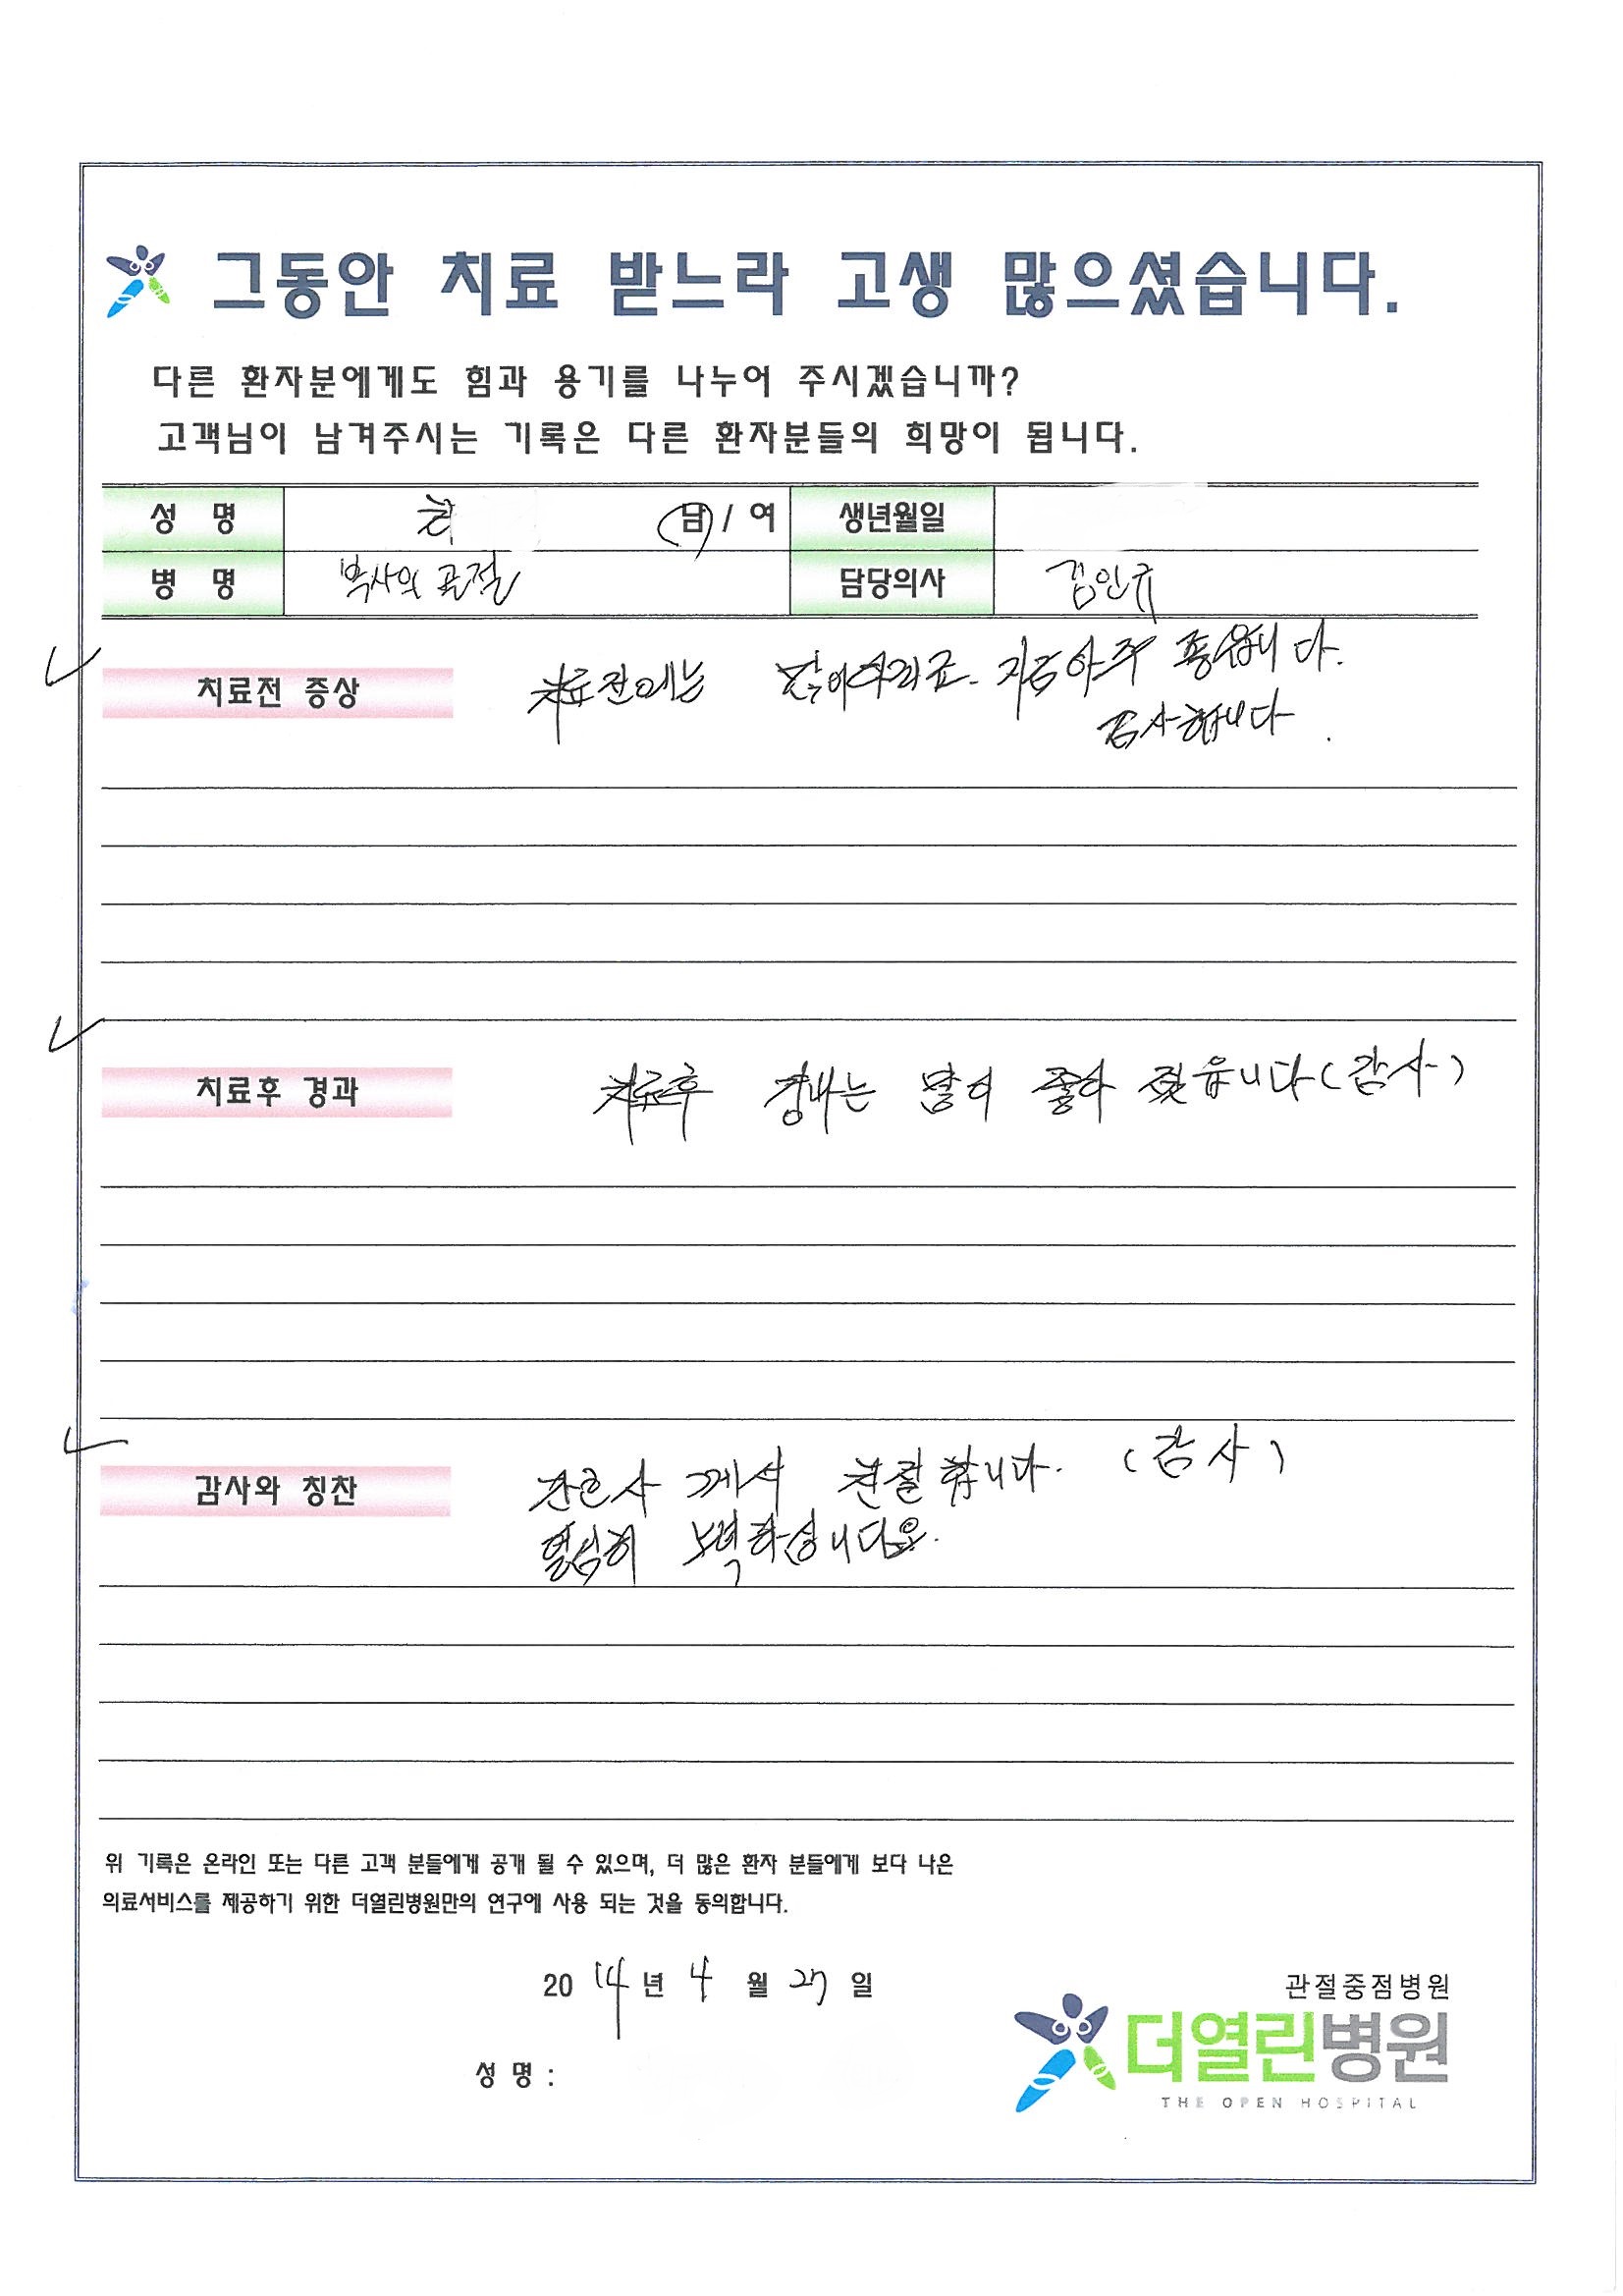 그동안 치료 받느라 고생 많으셨습니다.
다른 환자분에게도 힘과 용기를 나누어 주시겠습니까?
고객님이 남겨주시는 기록은 다른 환자분들의 희망이 됩니다.
성 명 남 / 여 생년월일
병 명 골절 담당의사 김인규
치료전 증상 치료전에는 지금 아주 좋습니다.
감사합니다.
치료후 경과 치료후 좋아 졌읍니다 (감사)
감사와 칭찬 간호사 께서 친절합니다. (감사)
열심히 노력하십니다요.
위 기록은 온라인 또는 다른 고객 분들에게 공개 될 수 있으며, 더 많은 환자 분들에게 보다 나은
의료서비스를 제공하기 위한 더열린병원만의 연구에 사용 되는 것을 동의합니다.
2014년 4 월 27 일
성 명 :
관절중점병원
더열린병원
THE OPEN HOSPITAL